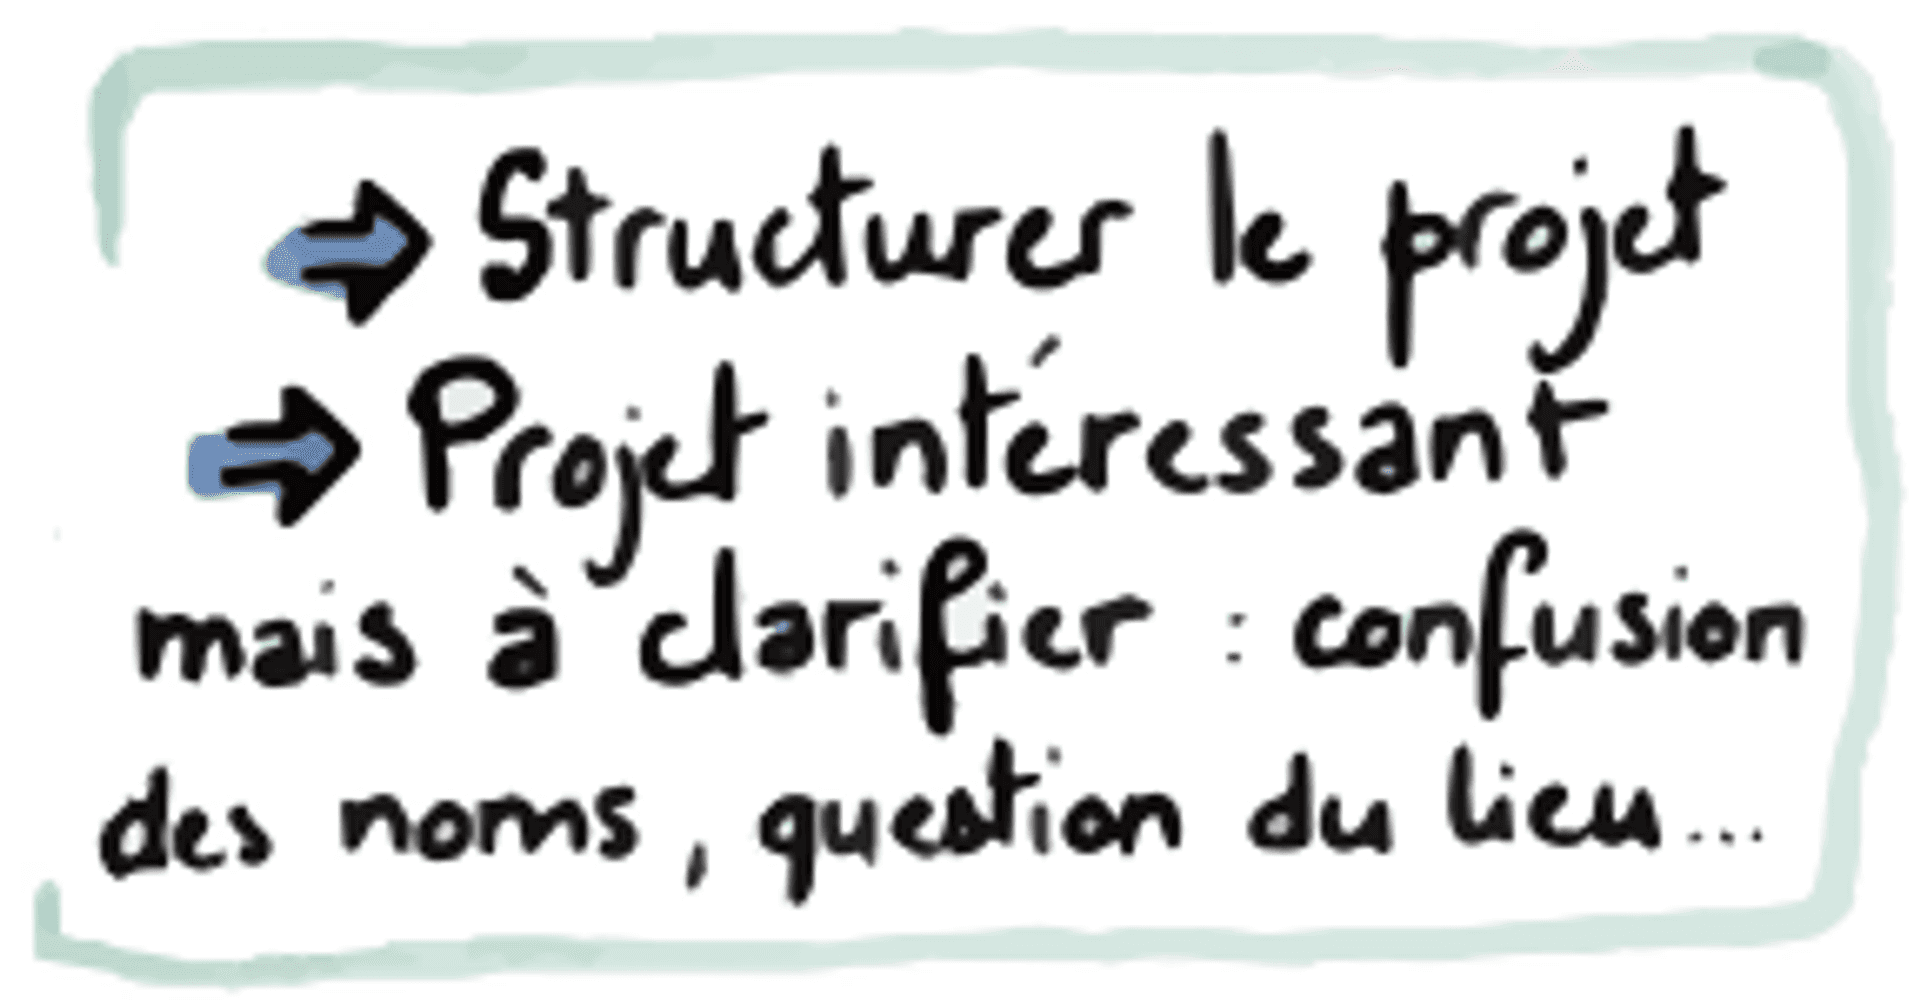 ⇨ Structurer le projet
⇨ Projet intéressant
mais à clarifier : confusion
des noms, question du lieu...